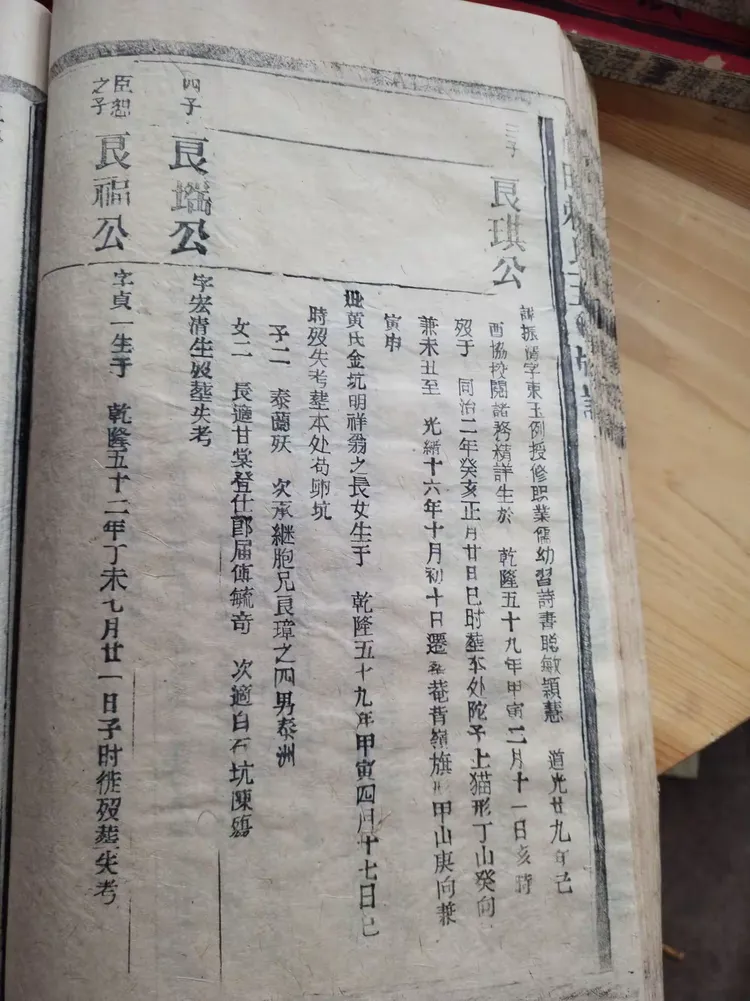 三子
良琪公
諱振聲字東玉例授修职業儒幼習詩書聪敏穎慧 道光廿九年己
酉協校閱諸務精詳生於 乾隆五十九年甲寅二月十一日亥時
殁于 同治二年癸亥正月廿日巳时葬本处陀予上猫形丁山癸向
兼未丑至 光緒十六年十月初十日遷 菴背嶺旗形甲山庚向兼
寅申
妣黄氏金坑明祥翁之長女生于 乾隆五十九年甲寅四月十七日巳
時殁失考葬本处苟卵坑
子二 泰蘭殀 次承継胞兄良璋之四男泰洲
女二 長適甘棠登仕郎届傅毓奇 次適白石坑陳
四子
良瑞公
字宏清生殁葬失考
臣恕
之子
良福公
字貞一生于 乾隆五十二年丁未七月廿一日子时徙殁葬失考